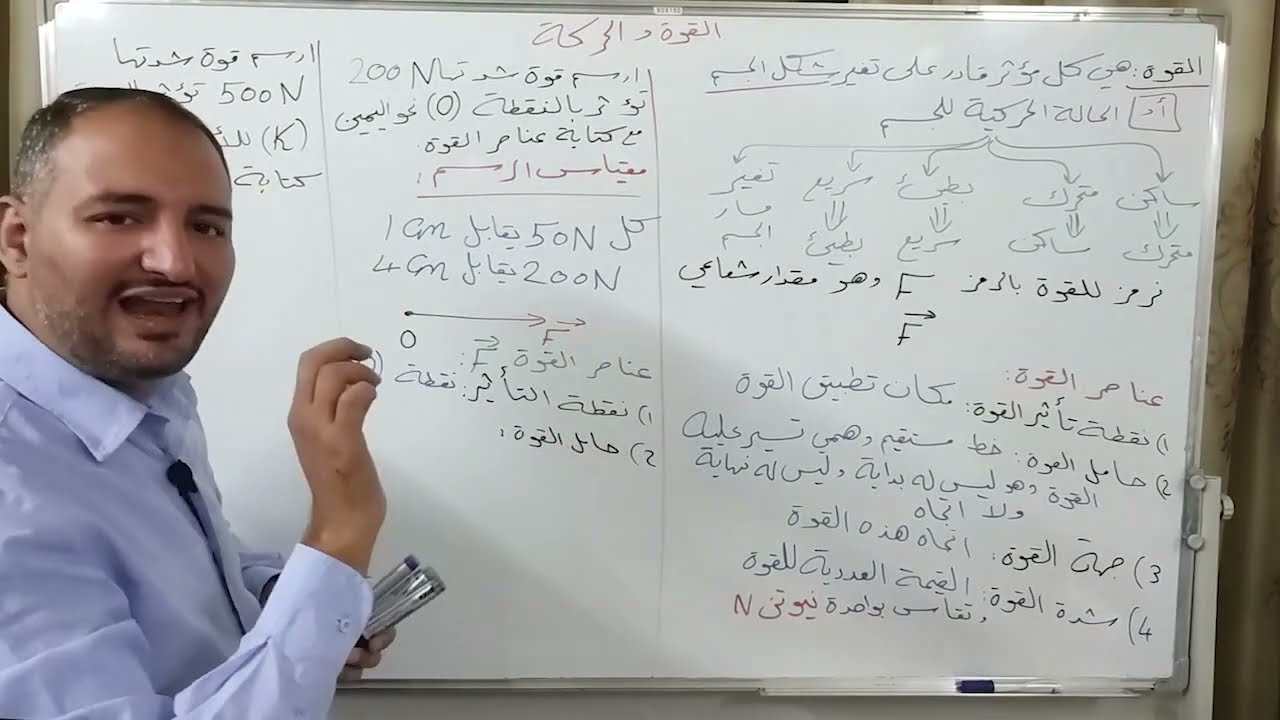 القوة والحركة
القوة: هي كل مؤثر قادر على تغير شكل الجسم
أو الحالة الحركية للجسم
ساكن متحرك بطيئ سريع تغير
متحرك ساكن سريع بطيئ مسار الجسم
نرمز للقوة بالرمز F وهو مقدار شعاعي
F
عناصر القوة:
1) نقطة تأثير القوة: مكان تطبيق القوة
2) حامل القوة: خط مستقيم وهمي تسير عليه
القوة وهو ليس له بداية وليس له نهاية
ولا اتجاه
3) جهة القوة: اتجاه هذه القوة
4) شدة القوة: القيمة العددية للقوة
وتقاس بواحدة نيوتن N
ارسم قوة شدتها 200N
تؤثر بالنقطة (O) نحو اليمين
مع كتابة عناصر القوة.
مقياس الرسم:
كل 50N يقابل 1cm
200N يقابل 4cm
O F
عناصر القوة F:
1) نقطة التأثير: نقطة
2) حامل القوة:
ارسم قوة شدتها
500N
(K)
كتابة